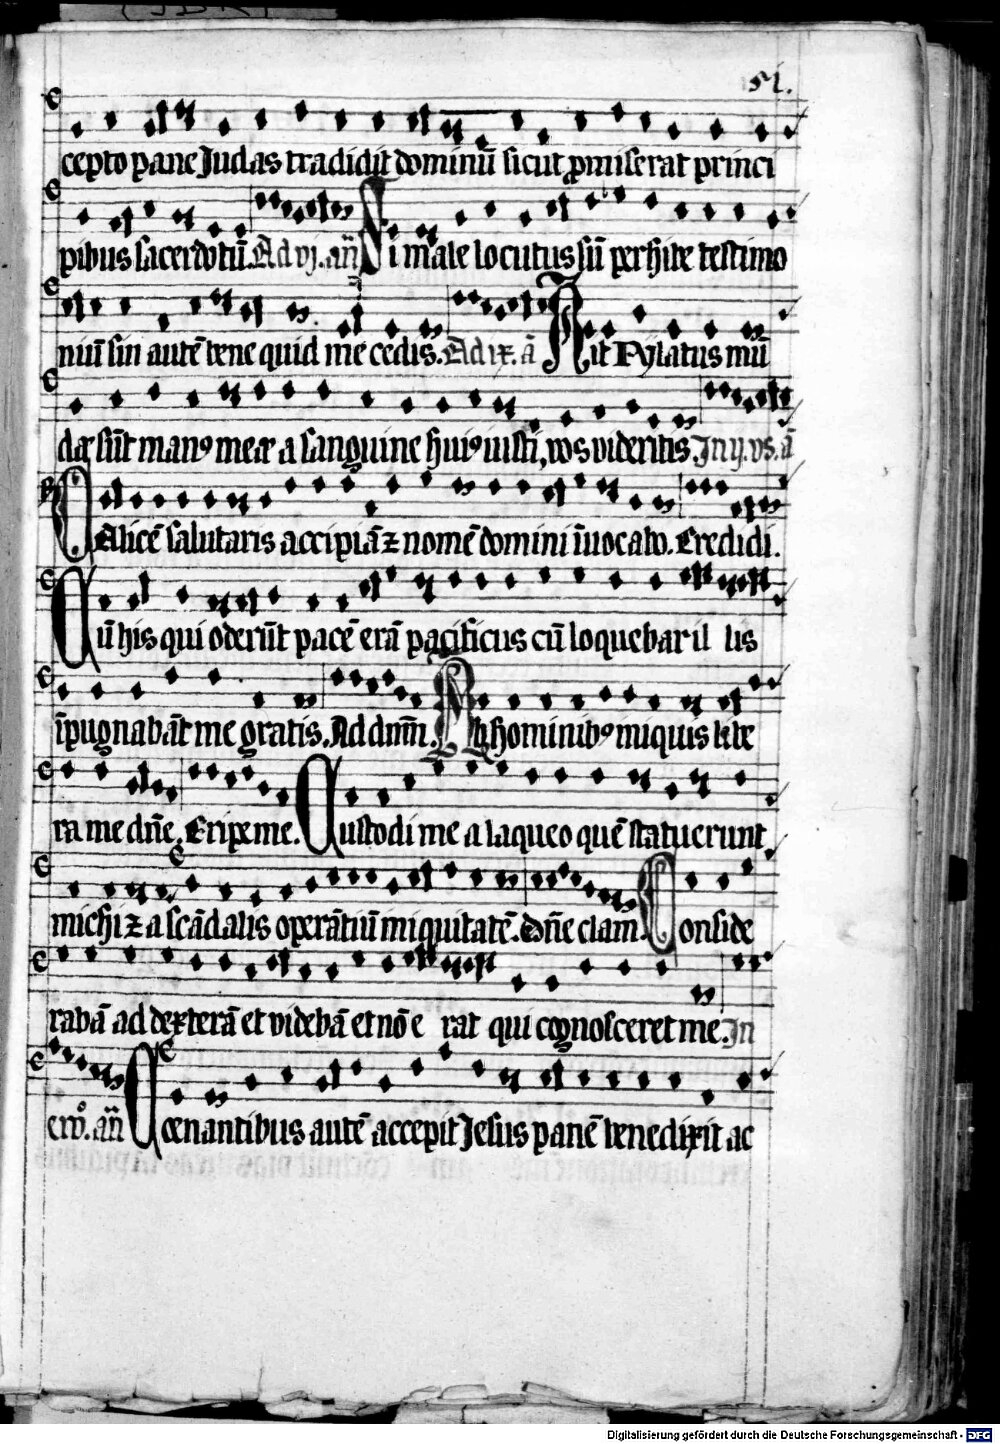 51.
cepto pane Judas tradidit dominū sicut ꝓmiserat princi
pibus sacerdotū. Ad vj. an̄ Si male locutus sū perhibe testimo
niū sin autē bene quid me cedis. Ad ix. ā Ait Pylatus mū
dꝰ sūt manꝰ meæ a sanguine huiꝰ iusti, vos videritis. In ij. vs. ā
Calicē salutaris accipiā ⁊ nomē domini īuocabo. Credidi.
Cū his qui oderūt pacē erā pacificus cū loquebar il lis
īpugnabāt me gratis. Ad dnm̄. Ab hominibꝰ iniquis libe
ra me dn̄e. Eripe me. Custodi me a laqueo quē statuerunt
michi ⁊ a scādalis operātiū iniquitatē. Dn̄e clam. Conside
rabā ad dexterā et videbā et nō e rat qui cognosceret me. In
an̄ Coenantibus autē accepit Jesus panē benedixit ac
Digitalisierung gefördert durch die Deutsche Forschungsgemeinschaft - DFG